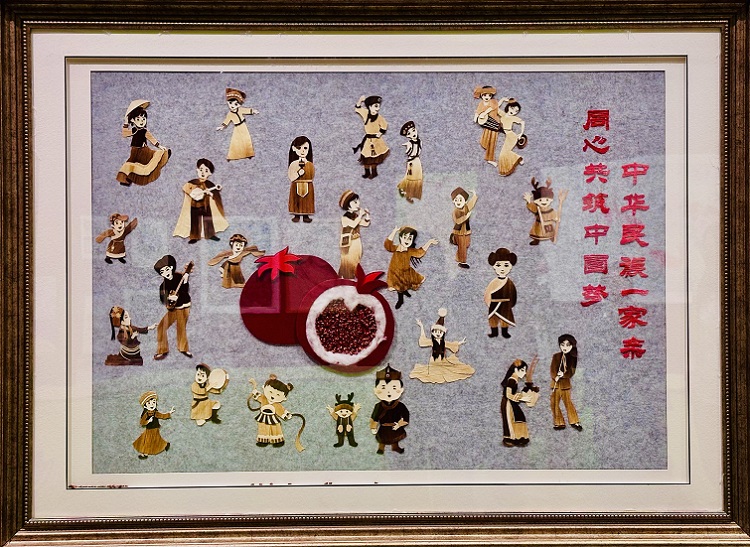 中华民族一家亲
同心共筑中国梦